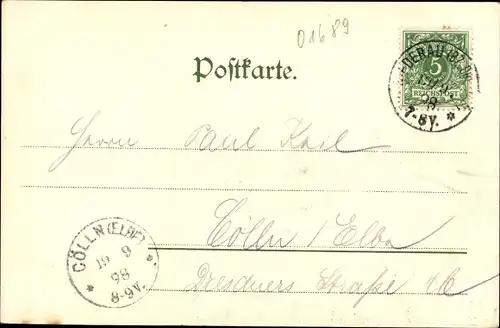 01689
Postkarte.
5
REICHSPOST
98
7-8V.
Herrn Paul Keil
Cölln / Elbe
Dresdners Straße
CÖLLN (ELBE)
19 9
98
8-9V.